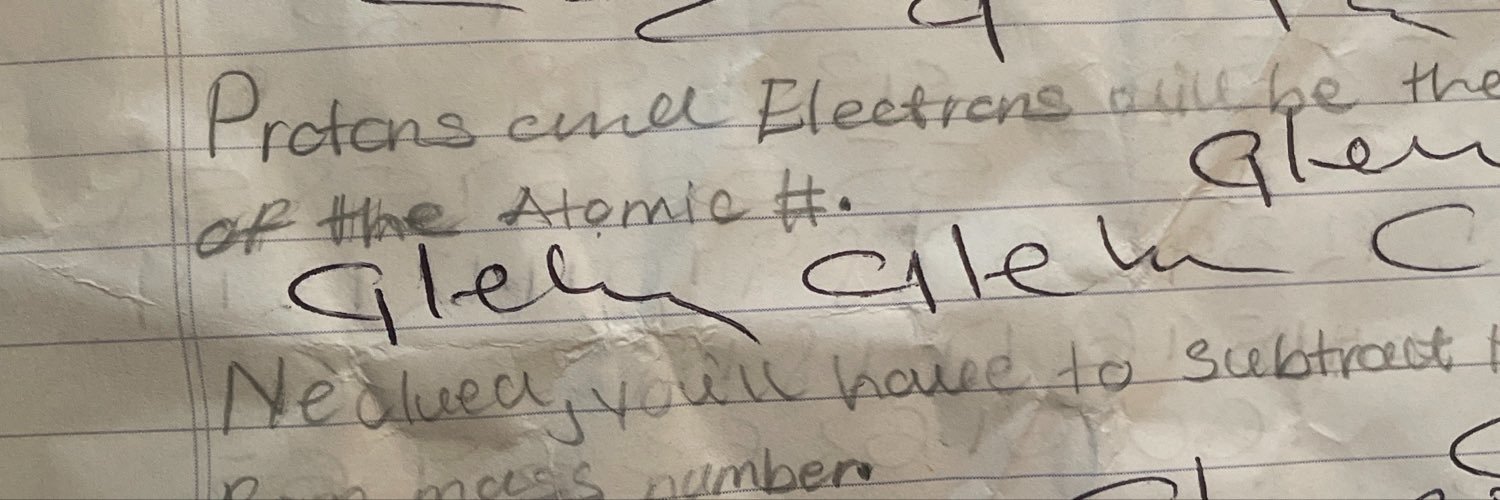 Protons and Electrons will be the
Glen
of the Atomic #.
Glen Glen
you'll have to subtract
mass number.